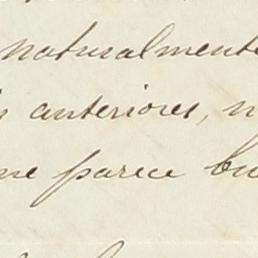 naturalmente
anteriores,
me parece